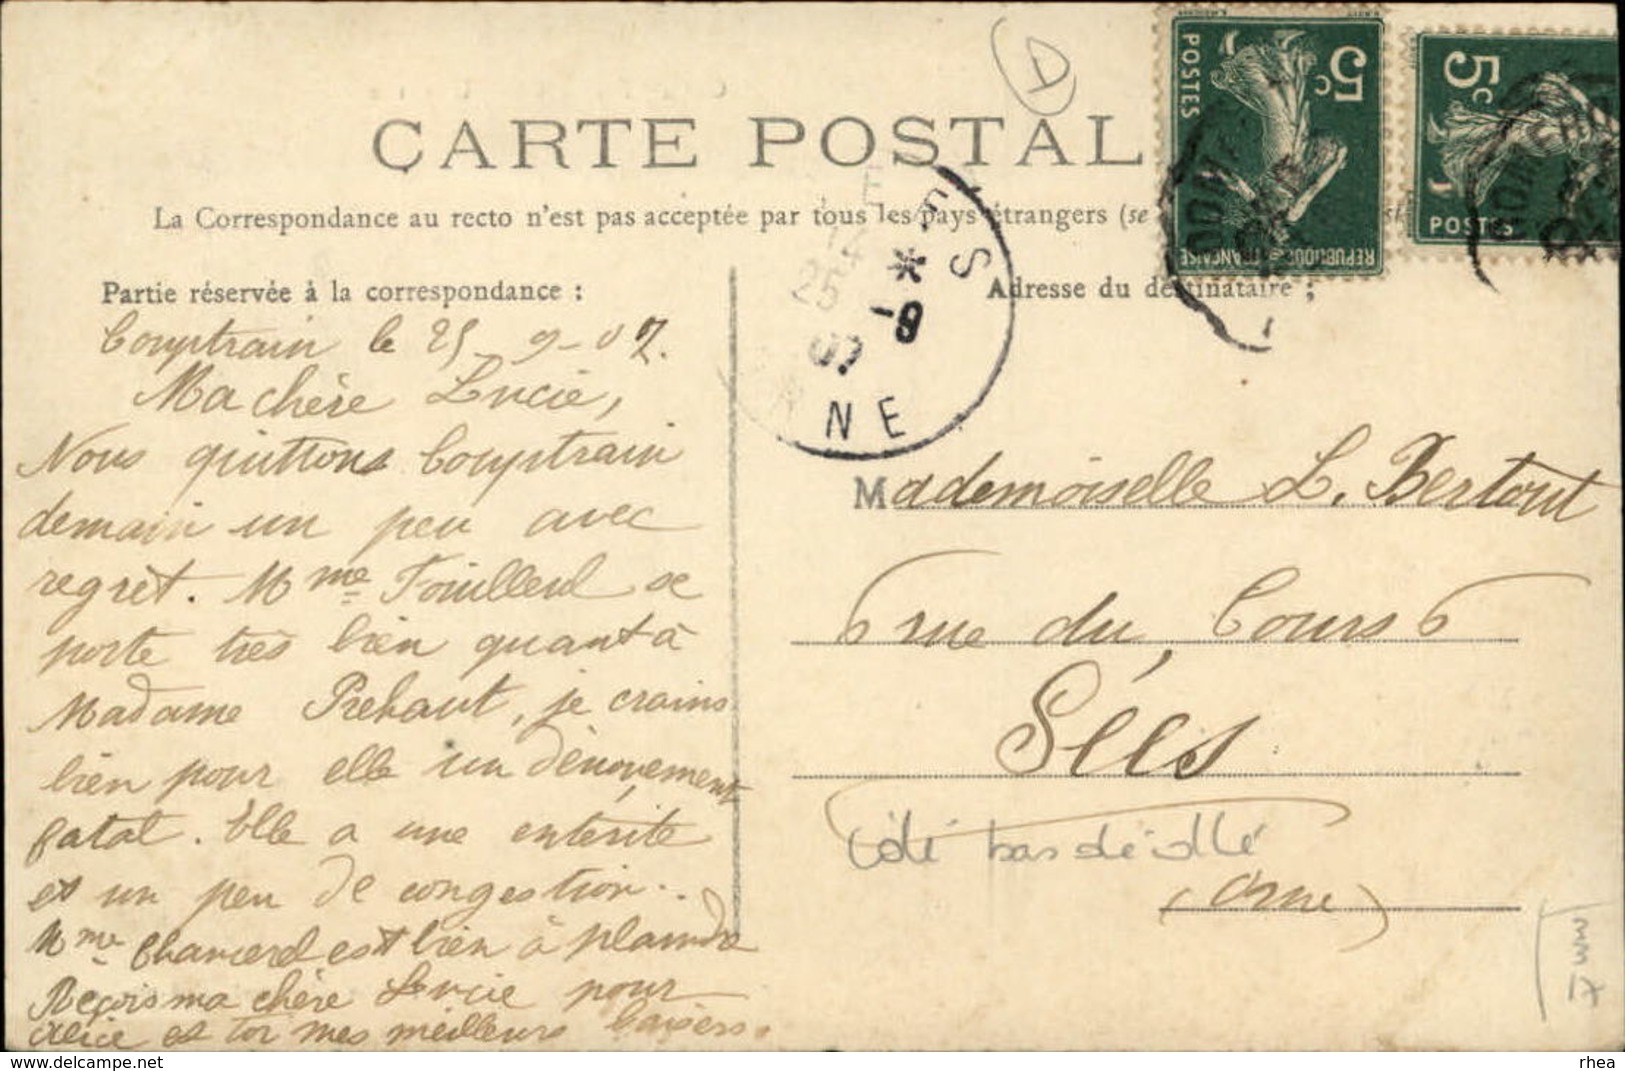 CARTE POSTAL
La Correspondance au recto n'est pas acceptée par tous les pays étrangers (se
Partie réservée à la correspondance :
Comptrain le 25-9-07.
Ma chère Lucie,
Nous quittons Comptrain
demain un peu avec
regret. Mme Fouilleul se
porte très bien quant à
Madame Prehaut, je crains
bien pour elle un dénouement
fatal. Elle a une entérite
et un peu de congestion.
Mme est bien à plaindre
Reçois ma chère Lucie pour
Alice et toi mes meilleurs baisers.
Adresse du destinataire ;
Mademoiselle L. Bertout
6 rue du Cours 6
Sées
(Orne)
5c
POSTES
REPUBLIQUE FRANÇAISE
5c
POSTES
E E S
25
* 9-
07
NE
rhea